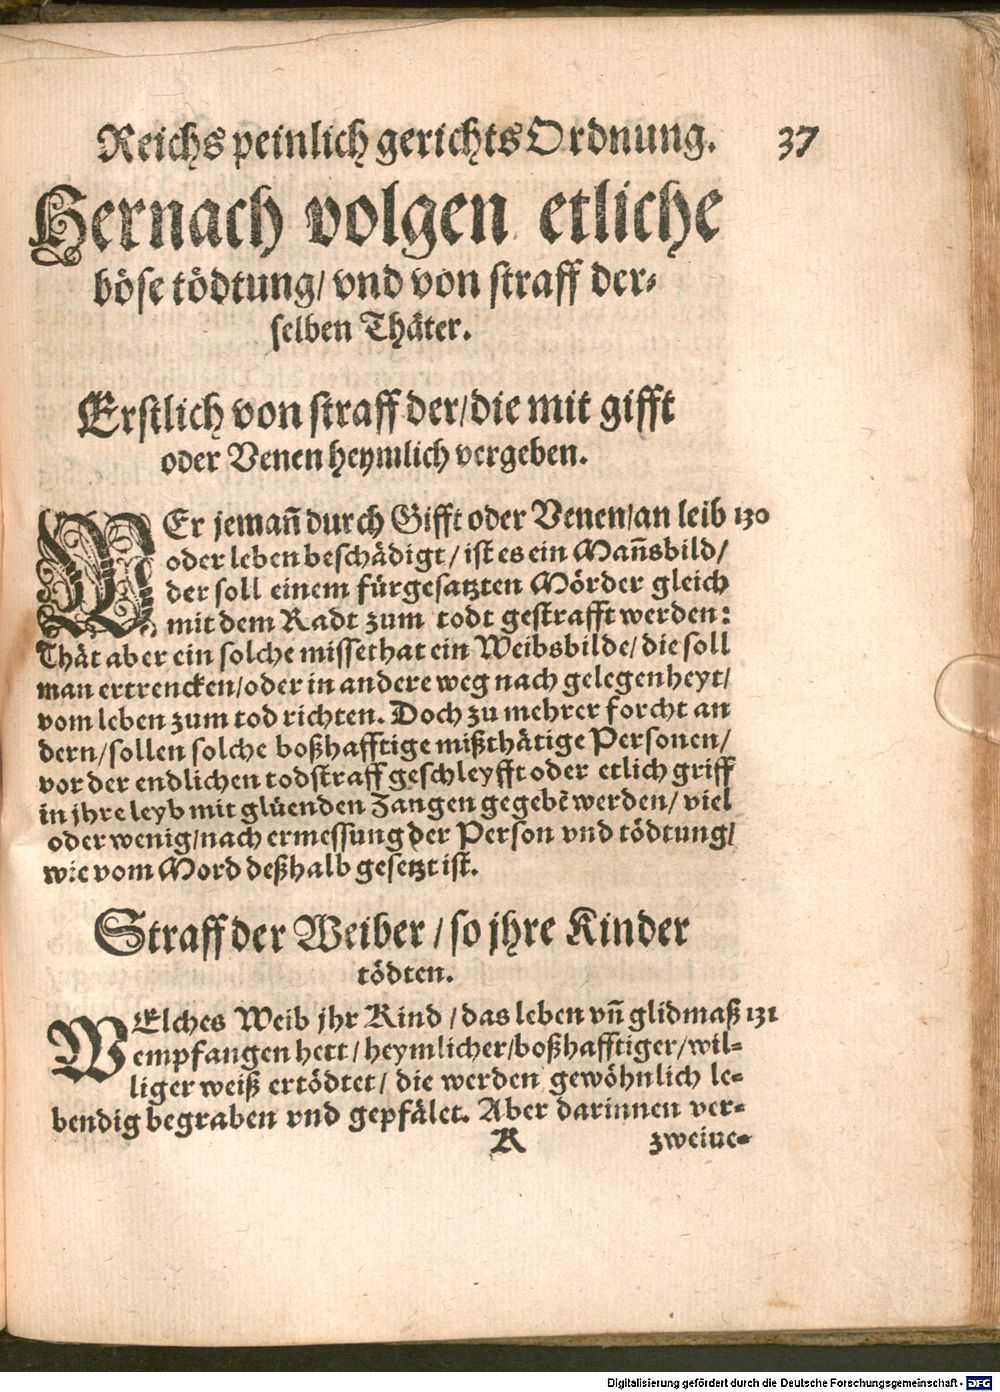 Reichs peinlich gerichts Ordnung. 37
Hernach volgen etliche
böse tödtung/ vnd von straff der-
selben Thäter.
Erstlich von straff der/die mit gifft
oder Venen heymlich vergeben.
WEr jemañ durch Gifft oder Venen/an leib 130
oder leben beschädigt/ ist es ein Mañsbild/
der soll einem fürgesatzten Mörder gleich
mit dem Radt zum todt gestrafft werden:
Thät aber ein solche missethat ein Weibsbilde/ die soll
man ertrencken/oder in andere weg nach gelegenheyt/
vom leben zum tod richten. Doch zu mehrer forcht an
dern/sollen solche boßhafftige mißthätige Personen/
vor der endlichen todstraff geschleyfft oder etlich griff
in jhre leyb mit glüenden Zangen gegebẽ werden/ viel
oder wenig/nach ermessung der Person vnd tödtung/
wie vom Mord deßhalb gesetzt ist.
Straff der Weiber/ so jhre Kinder
tödten.
WElches Weib jhr Kind/das leben vñ glidmaß 131
empfangen hett/ heymlicher/boßhafftiger/wil-
liger weiß ertödtet/ die werden gewöhnlich le-
bendig begraben vnd gepfälet. Aber darinnen ver-
K zweiue-
Digitalisierung gefördert durch die Deutsche Forschungsgemeinschaft - DFG